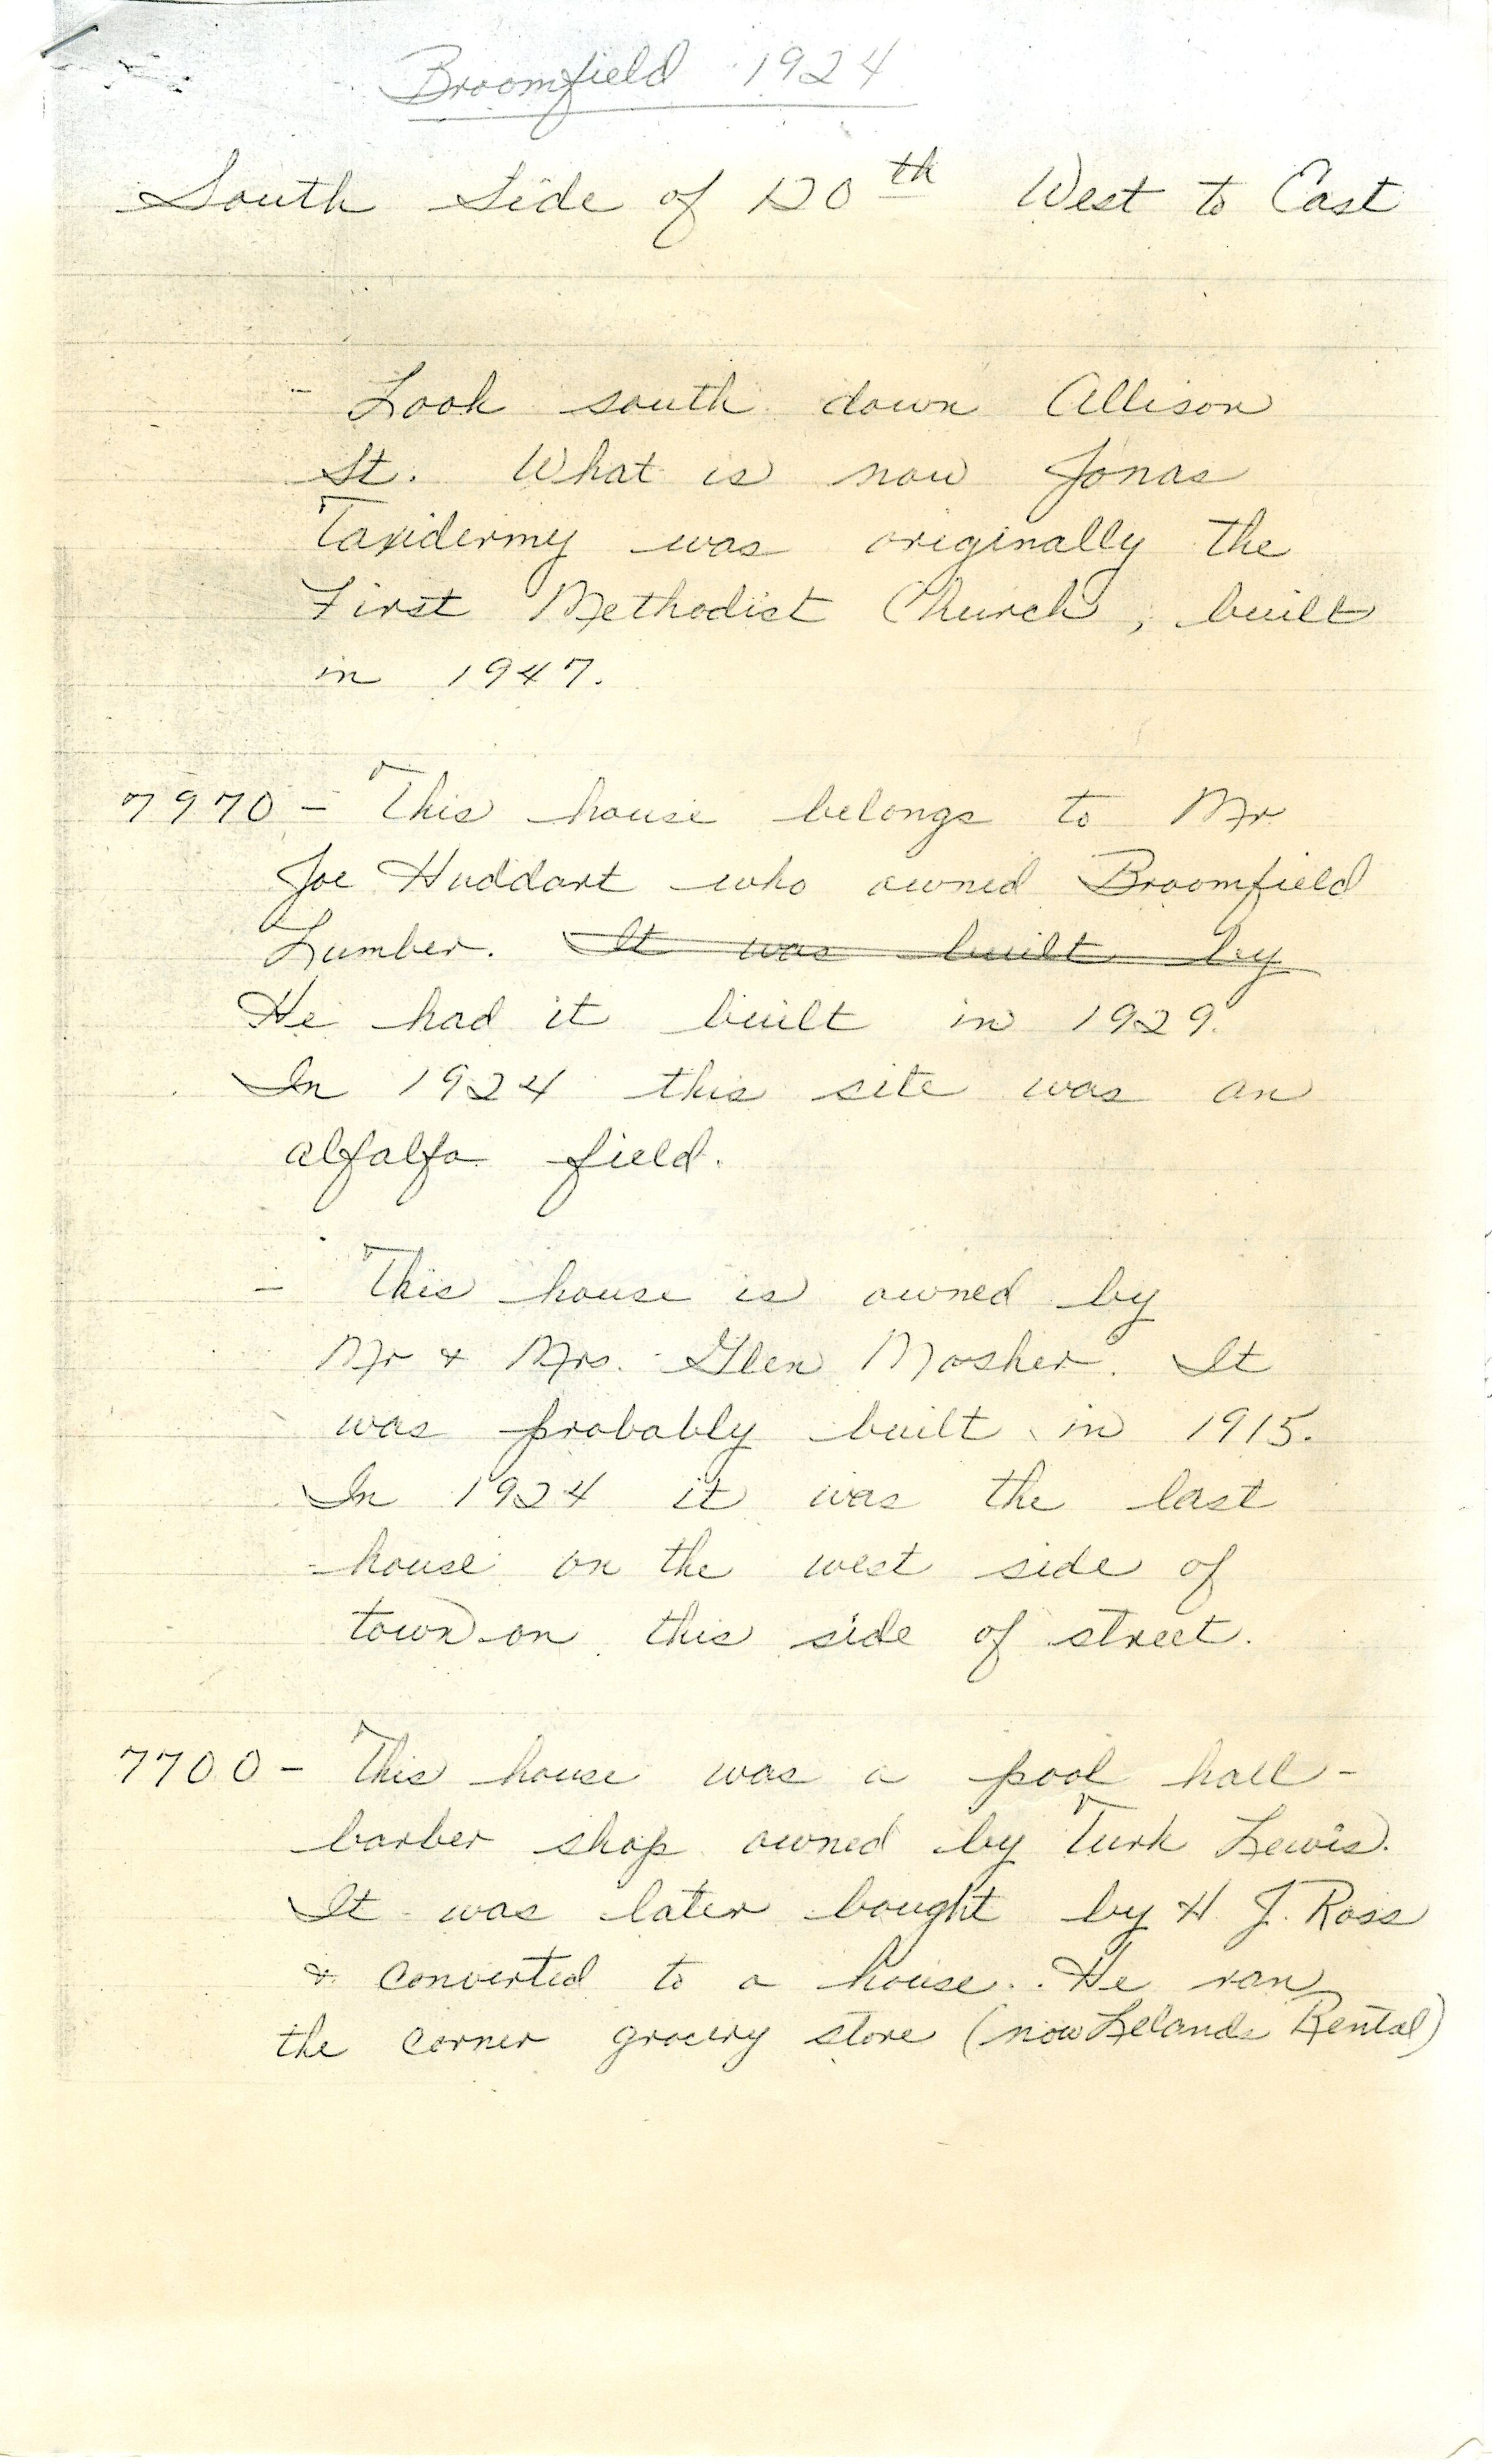 Broomfield 1924
South Side of 120th West to East
- Look south down Allison
St. What is now Jonas
Taxidermy was originally the
First Methodist Church, built
in 1947.
7970 - This house belongs to Mr
Joe Huddart who owned Broomfield
Lumber. It was built by
He had it built in 1929.
In 1924 this site was an
alfalfa field.
- This house is owned by
Mr & Mrs. Glen Mosher. It
was probably built in 1915.
In 1924 it was the last
house on the west side of
town on this side of street.
7700 - This house was a pool hall -
barber shop owned by Turk Lewis.
It was later bought by H. J. Ross
& converted to a house. He ran
the corner grocery store (now Lelands Rental)